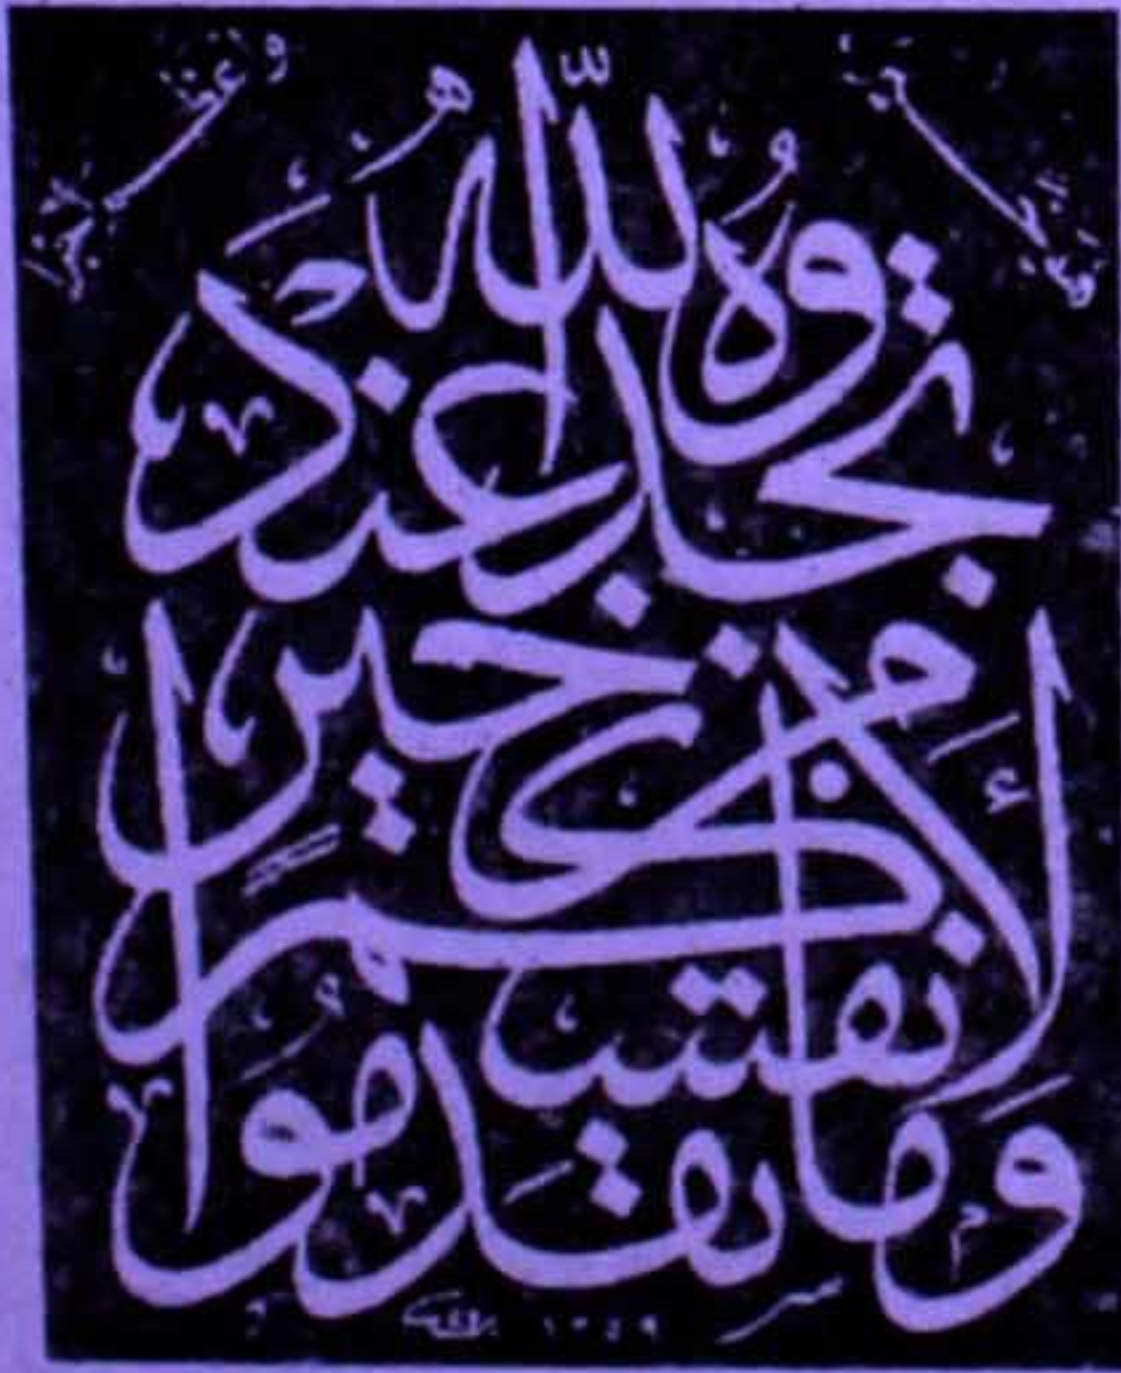 وَمَا تقدموا
لأنفسكم
من خير
تجدوه عند الله